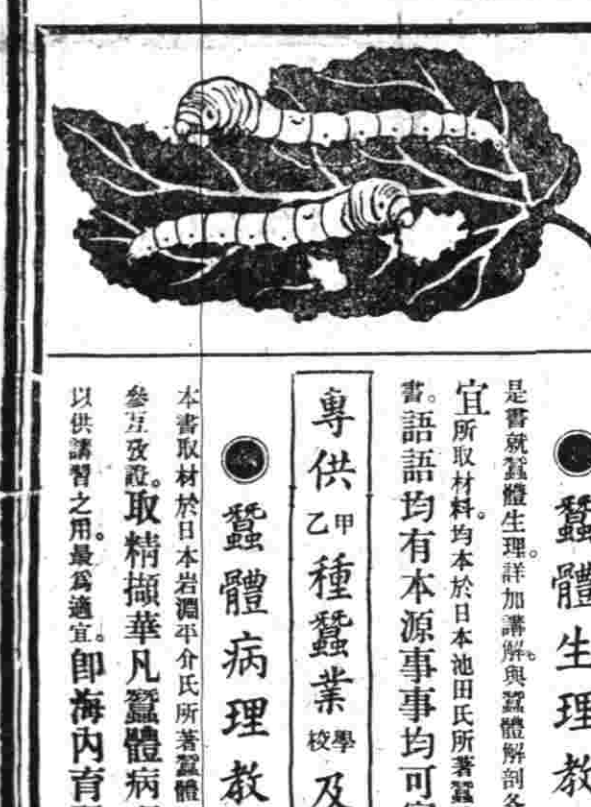 蠶體生理教
是書就蠶體生理。詳加講解。與蠶體解剖
宜所取材料。均本於日本池田氏所著蠶
書。語語均有本源事事均可
專供甲乙種蠶業學校及
蠶體病理教
本書取材於日本岩淵平介氏所著蠶體
參互攷證。取精擷華凡蠶體病
以供講習之用。最爲適宜。卽海內育